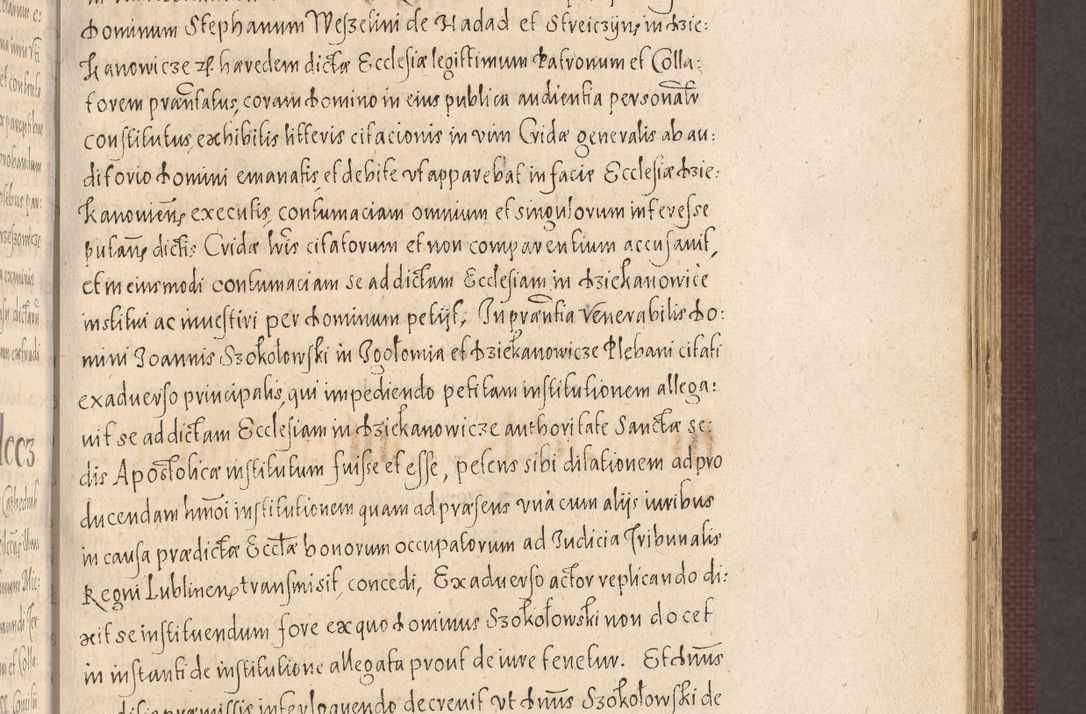 Dominum Stephanum Weszelini de Hadad et Streiczyn in Dzie:
kanowicze et hæredem dictæ Ecclesiæ legittimum Patronum et Colla:
torem præntatus, coram Domino in eius publica audientia personalr
constitutus, exhibitis litteris citacionis in vim Cridæ generalis ab au:
ditorio Domini emanatis, et debite ut apparebat in facie Ecclesiæ Dzie:
kanovien executis, contumaciam omnium et singulorum interesse
putan dictis Cridæ lris citatorum et non comparentium accusavit,
et in eiusmodi contumaciam se ad dictam Ecclesiam in Dziekanowice
institui ac investiri per Dominum petijt, In præntia Venerabilis Do:
mini Joannis Szokołowski in Igołomia et Dziekanowicze Plebani citati
ex adverso principalis, qui impediendo petitam institutionem allega:
vit se ad dictam Ecclesiam in Dziekanowicze authoritate Sanctæ se:
dis Apostolicæ institutum fuisse et esse, petens sibi dilationem ad pro
ducendam hmoi institutionem quam ad præsens vnà cum alijs iuribus
in causa prædictæ Ecctæ bonorum occupatorum ad Iudicia Tribunalis
Regni Lublinen transmisit, concedi, Ex adverso actor replicando di:
xit se instituendum fore ex quo Dominus Szokołowski non docet
in instanti de institutione allegata prout de iure tenetur. Et Dnus
præmissis interloquendo decrevit ut Dnus Szokołowski de